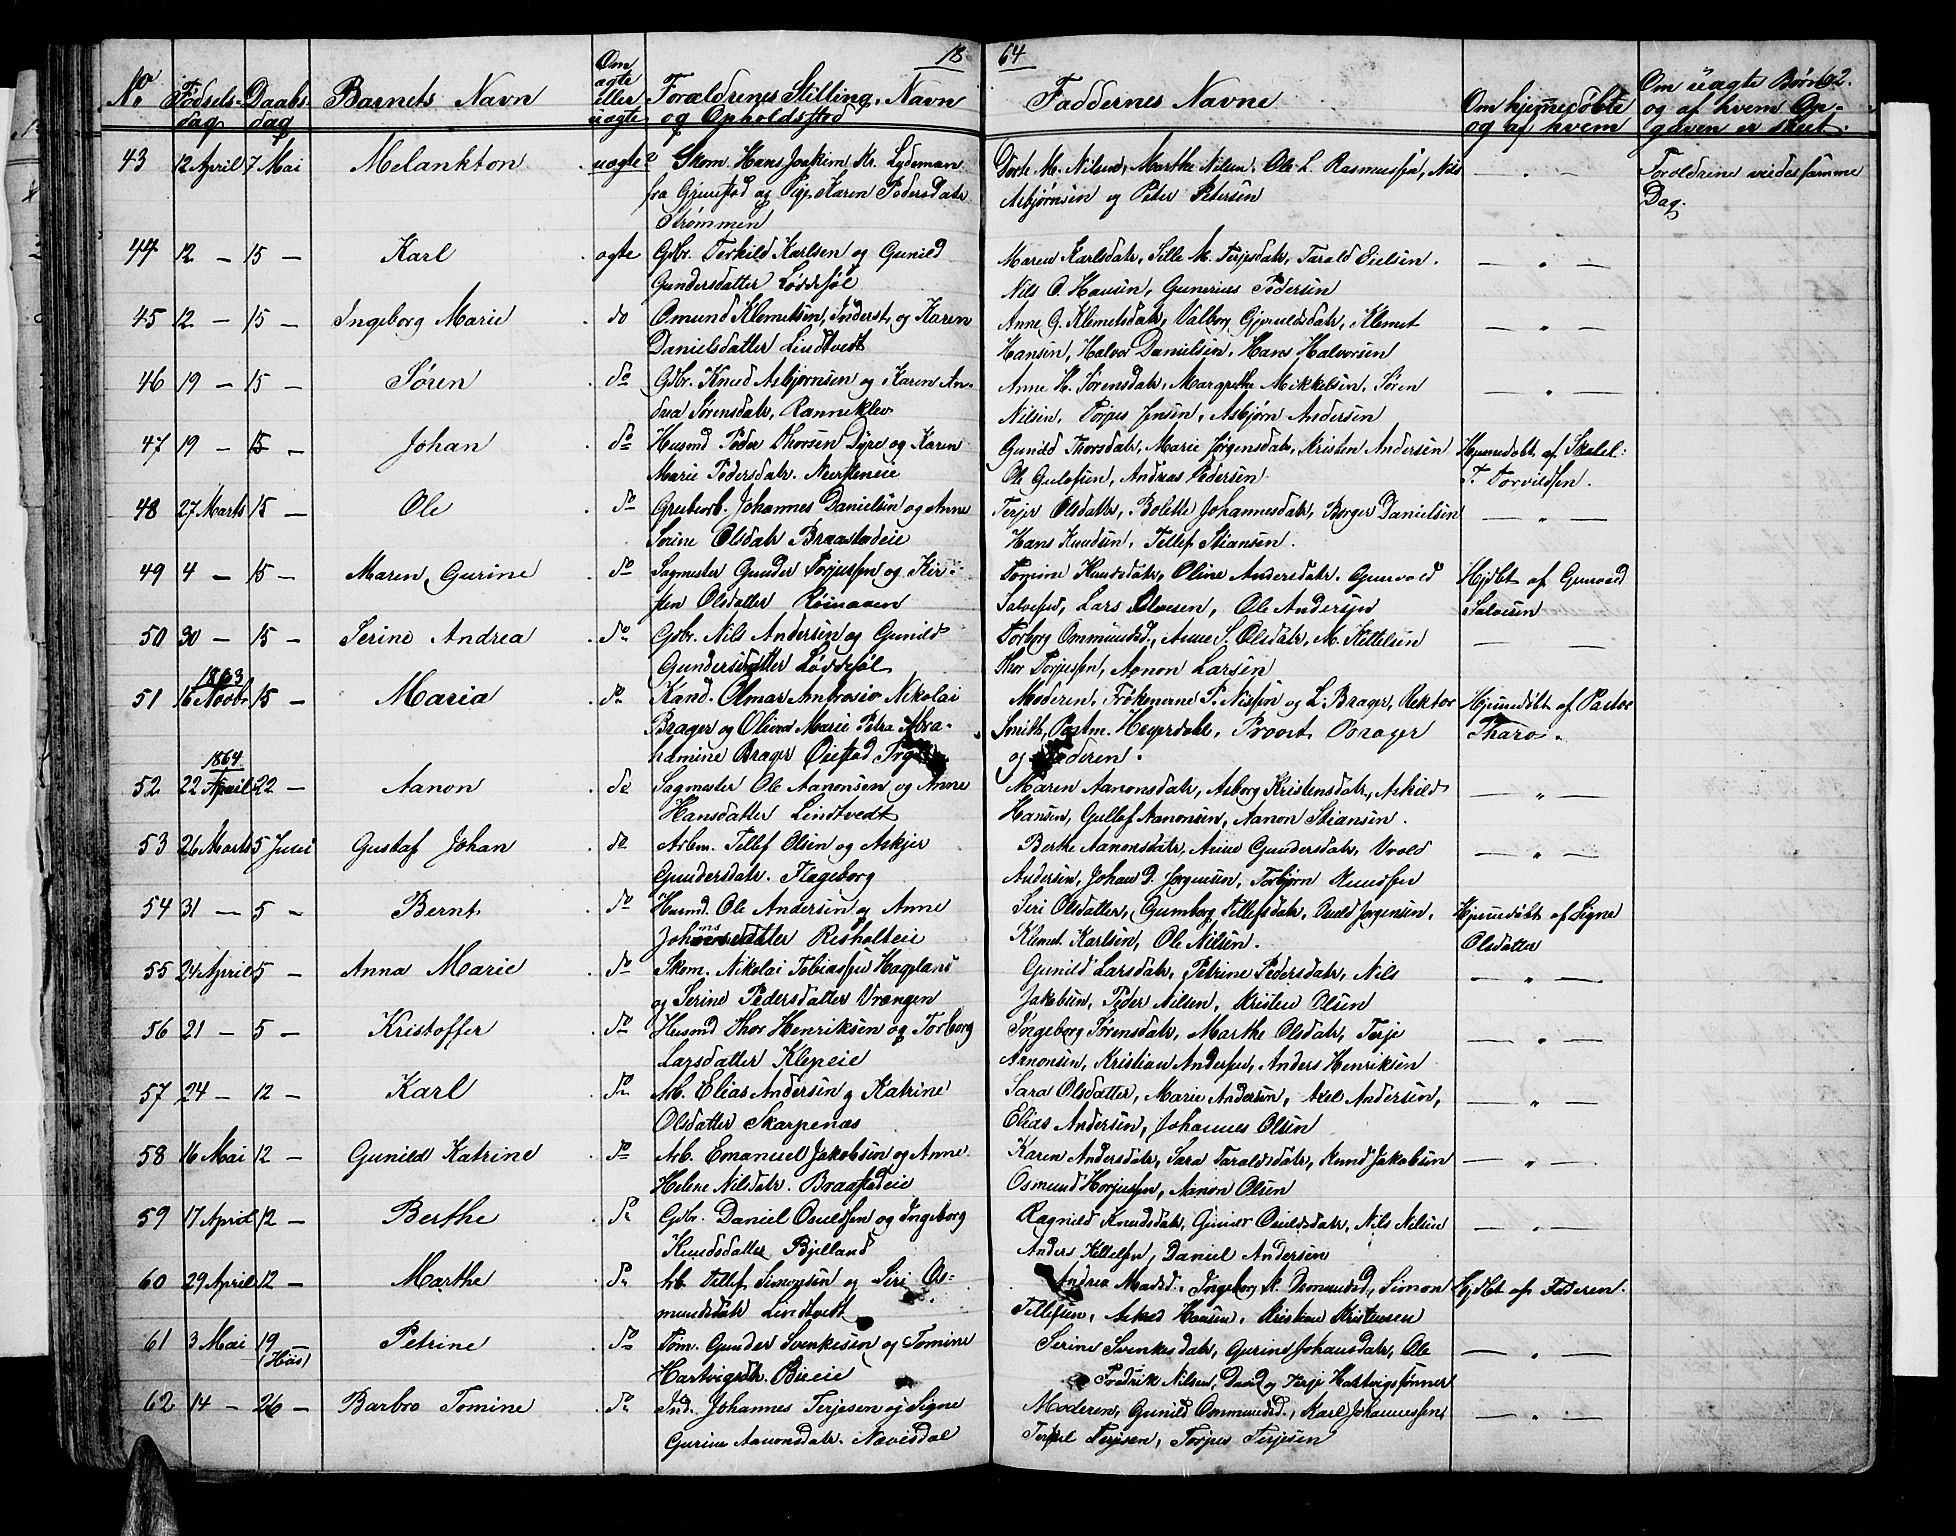 18 64
62.
No. Fødsels- dag Daabs- dag Barnets Navn Om ægte eller uægte Forældrenes Stilling, Navn og Opholdssted Faddernes Navne Om hjemmedøbte og af hvem Om uægte Børn og af hvem Op- gaven er skeet.
43 12 April 7 Mai Melankton uægte Skom. Hans Joakim Kr. Lydeman Dorte M. Nilsen, Marthe Nilsen, Ole L. Rasmussen, Nils — " — Forældrene viedes samme
fra Grimstad og Pige Karen Pedersdatr Asbjørnsen og Peter Petersen Dag.
Strømmen
44 12 — 15 — Karl ægte Gbr. Terkild Karlsen og Gunild Maren Karlsdatr, Sille M. Terjesdatr, Tarald Eielsen — " —
Gundersdatter Løddesøl Nils O. Hansen, Gunerius Pedersen
45 12 — 15 — Ingeborg Marie do Omund Klemetsen, Inderst, og Karen Anne G. Klemetsdatr, Valborg Gjeruldsdatr, Klemet — " —
Danielsdatter Lindtvedt Hansen, Halvor Danielsen, Hans Halvorsen
46 19 — 15 — Søren do Gbr. Knud Asbjørnsen og Karen An- Anne H. Sørensdatr, Margrethe Mikkelsen, Søren — " —
drea Sørensdatr, Ranneklev Nilsen, Torjus Jensen, Asbjørn Andersen
47 19 — 15 — Johan do Husmd Peder Thorsen Dyre og Karen Gunild Thorsdatr, Marie Jørgensdatr, Kristen Andersen Hjemmedøbt af Skolel.
Marie Pedersdatr. Nersteneie Ole Gulofsen, Andreas Pedersen T. Torvildsen.
48 27 Marts 15 — Ole do Grubearb. Johannes Danielsen og Anne Terje Olsdatter, Bolette Johannesdatr, Børger Danielsen — " —
Serine Olsdatr Braastadeie Hans Knudsen, Tellef Stiansen.
49 4 — 15 — Maren Gurine do Sagmester Gunder Torjussen og Kir- Tomine Knudsdatr, Oline Andersdatr, Gunvald Hjdbt af Gunvald
sten Olsdatter Rømaaen Salvesen, Lars Olsen, Ole Andersen Salvesen
50 30 — 15 — Serine Andrea do Gbr. Nils Andersen og Gunild Torborg Ommundsd., Anne S. Olsdatr, M. Kettelsen — —
Gundersdatter Løddesøl Thor Torjussen, Aanon Larsen
1863
51 16 Novbr 15 — Maria do Kand. Olmar Ambrosio Nikolai Moderen, Frøkenerne P. Nissen og L. Brager, Rektor Hjemmedøbt af Pastor
Brager og Olivia Marie Petra Abra- Smith, Postm. Heyerdahl, Provst Brager Tharo.
hamine Brager Øiestad og Faderen.
1864
52 22 April 22 — Aanon do Sagmester Ole Aanonsen og Anne Maren Aanonsdatr, Asborg Kristensdatr, Askild — " —
Hansdatter Lindtvedt Hansen, Gullef Aanonsen, Aanon Stiansen.
53 26 Marts 5 Juni Gustaf Johan do Arbm. Tellef Olsen og Askjer Berthe Aanonsdatr, Anne Gundersdatr, Uvold — " —
Gundersdatr. Flageborg Andersen, Johan D. Jørgensen, Torbjørn Knudsen
54 31 — 5 — Bernt do Husmd. Ole Andersen og Anne Siri Olsdatter, Gumborg Tellefsdatr, Osuld Jørgensen, Hjemmedøbt af Signe
Johansdatter Risholteie Klemet Karlsen, Ole Nilsen. Olsdatter
55 24 April 5 — Anna Marie do Skom. Nikolai Tobiassen Hageland Gunild Larsdatr, Petrine Pedersdatr, Nils — " —
og Serine Pedersdatter Vrængen Jakobsen, Peder Nilsen, Kristen Olsen
56 21 — 5 — Kristoffer do Husmd Thor Henriksen og Torborg Ingeborg Sørensdatr, Marthe Olsdatr, Terje — " —
Larsdatter Klepeie Aanonsen, Kristian Andersen, Anders Henriksen
57 24 — 12 — Karl do Arb. Elias Andersen og Katrine Sara Olsdatter, Marie Andersen, Axel Andersen, — " —
Olsdatter Skarpenæs Elias Andersen, Johannes Olsen
58 16 Mai 12 — Gunild Katrine do Arb. Emanuel Jakobsen og Anne Karen Andersdatr, Sara Taraldsdatr, Knud Jakobsen — " —
Helene Nilsdatr. Braastadeie Osmund Torjussen, Aanon Olsen
59 17 April 12 — Berthe do Gbr. Daniel Osuldsen og Ingeborg Ragnild Knudsdatr, Gunild Osuldsdatr, Nils Nilsen — " —
Knudsdatter Bjelland Anders Kittelsen, Daniel Andersen
60 29 April 12 — Marthe do Arb. Tellef Simonsen og Siri Os- Andrea Madsd., Ingeborg K. Osmundsd, Simon Hjdbt af Faderen.
mundsdatr Lindtvedt Tellefsen, Askild Hansen, Kristian Kristensen
61 3 Mai 19 (Høis) Petrine do Tøm. Gunder Svenkesen og Tomine Serine Svenkesdatr, Gurine Johansdatr, Ole — " —
Hartvigsdr. Bieie Fredrik Nilsen, David og Terje Hartvigssønner
62 14 — 26 — Barbro Tomine do Ind. Johannes Terjesen og Signe Moderen, Gunild Ommundsd., Karl Johannessen, — " —
Gurine Aanonsdatr. Nævisdal Terkel Terjesen, Torjus Terjesen